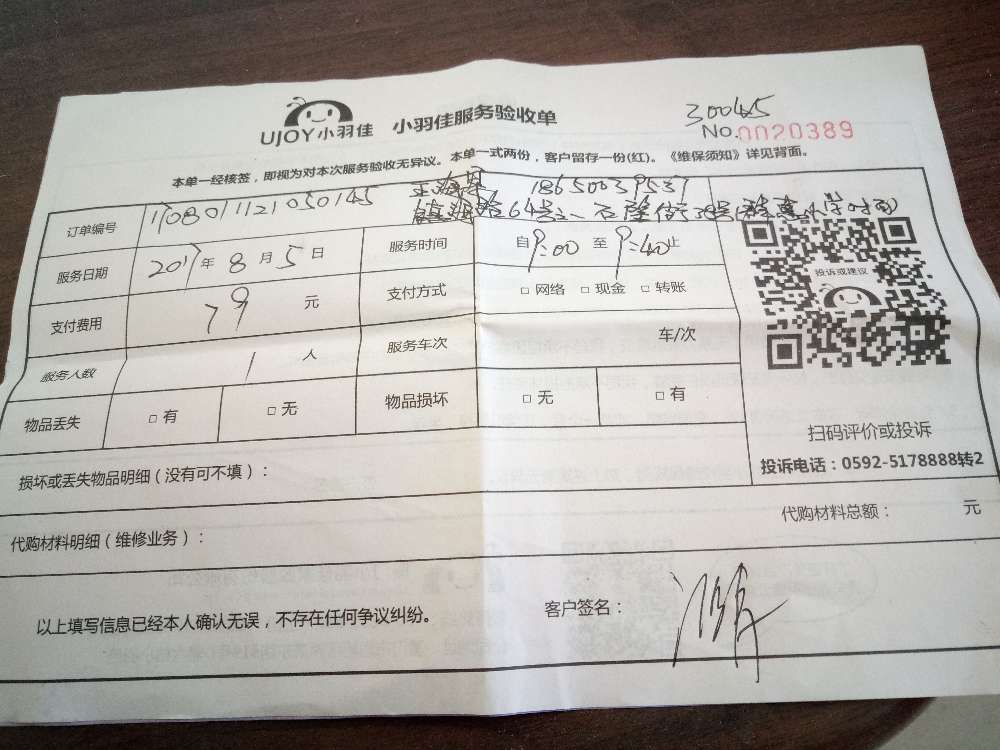 UJOY小羽佳 小羽佳服务验收单
300445
No.0020389
本单一经核签，即视为对本次服务验收无异议。本单一式两份，客户留存一份(红)。《维保须知》详见背面。
18650039537
订单编号 170801121050145
64号之一
服务日期 2017年8月5日 服务时间 自9:00至9:40止
支付费用 79元 支付方式 □网络 □现金 □转账
投诉或建议
服务人数 1人 服务车次 车/次
物品丢失 □有 □无 物品损坏 □无 □有
扫码评价或投诉
投诉电话：0592-5178888转2
损坏或丢失物品明细（没有可不填）：
代购材料明细（维修业务）： 代购材料总额： 元
以上填写信息已经本人确认无误，不存在任何争议纠纷。 客户签名：